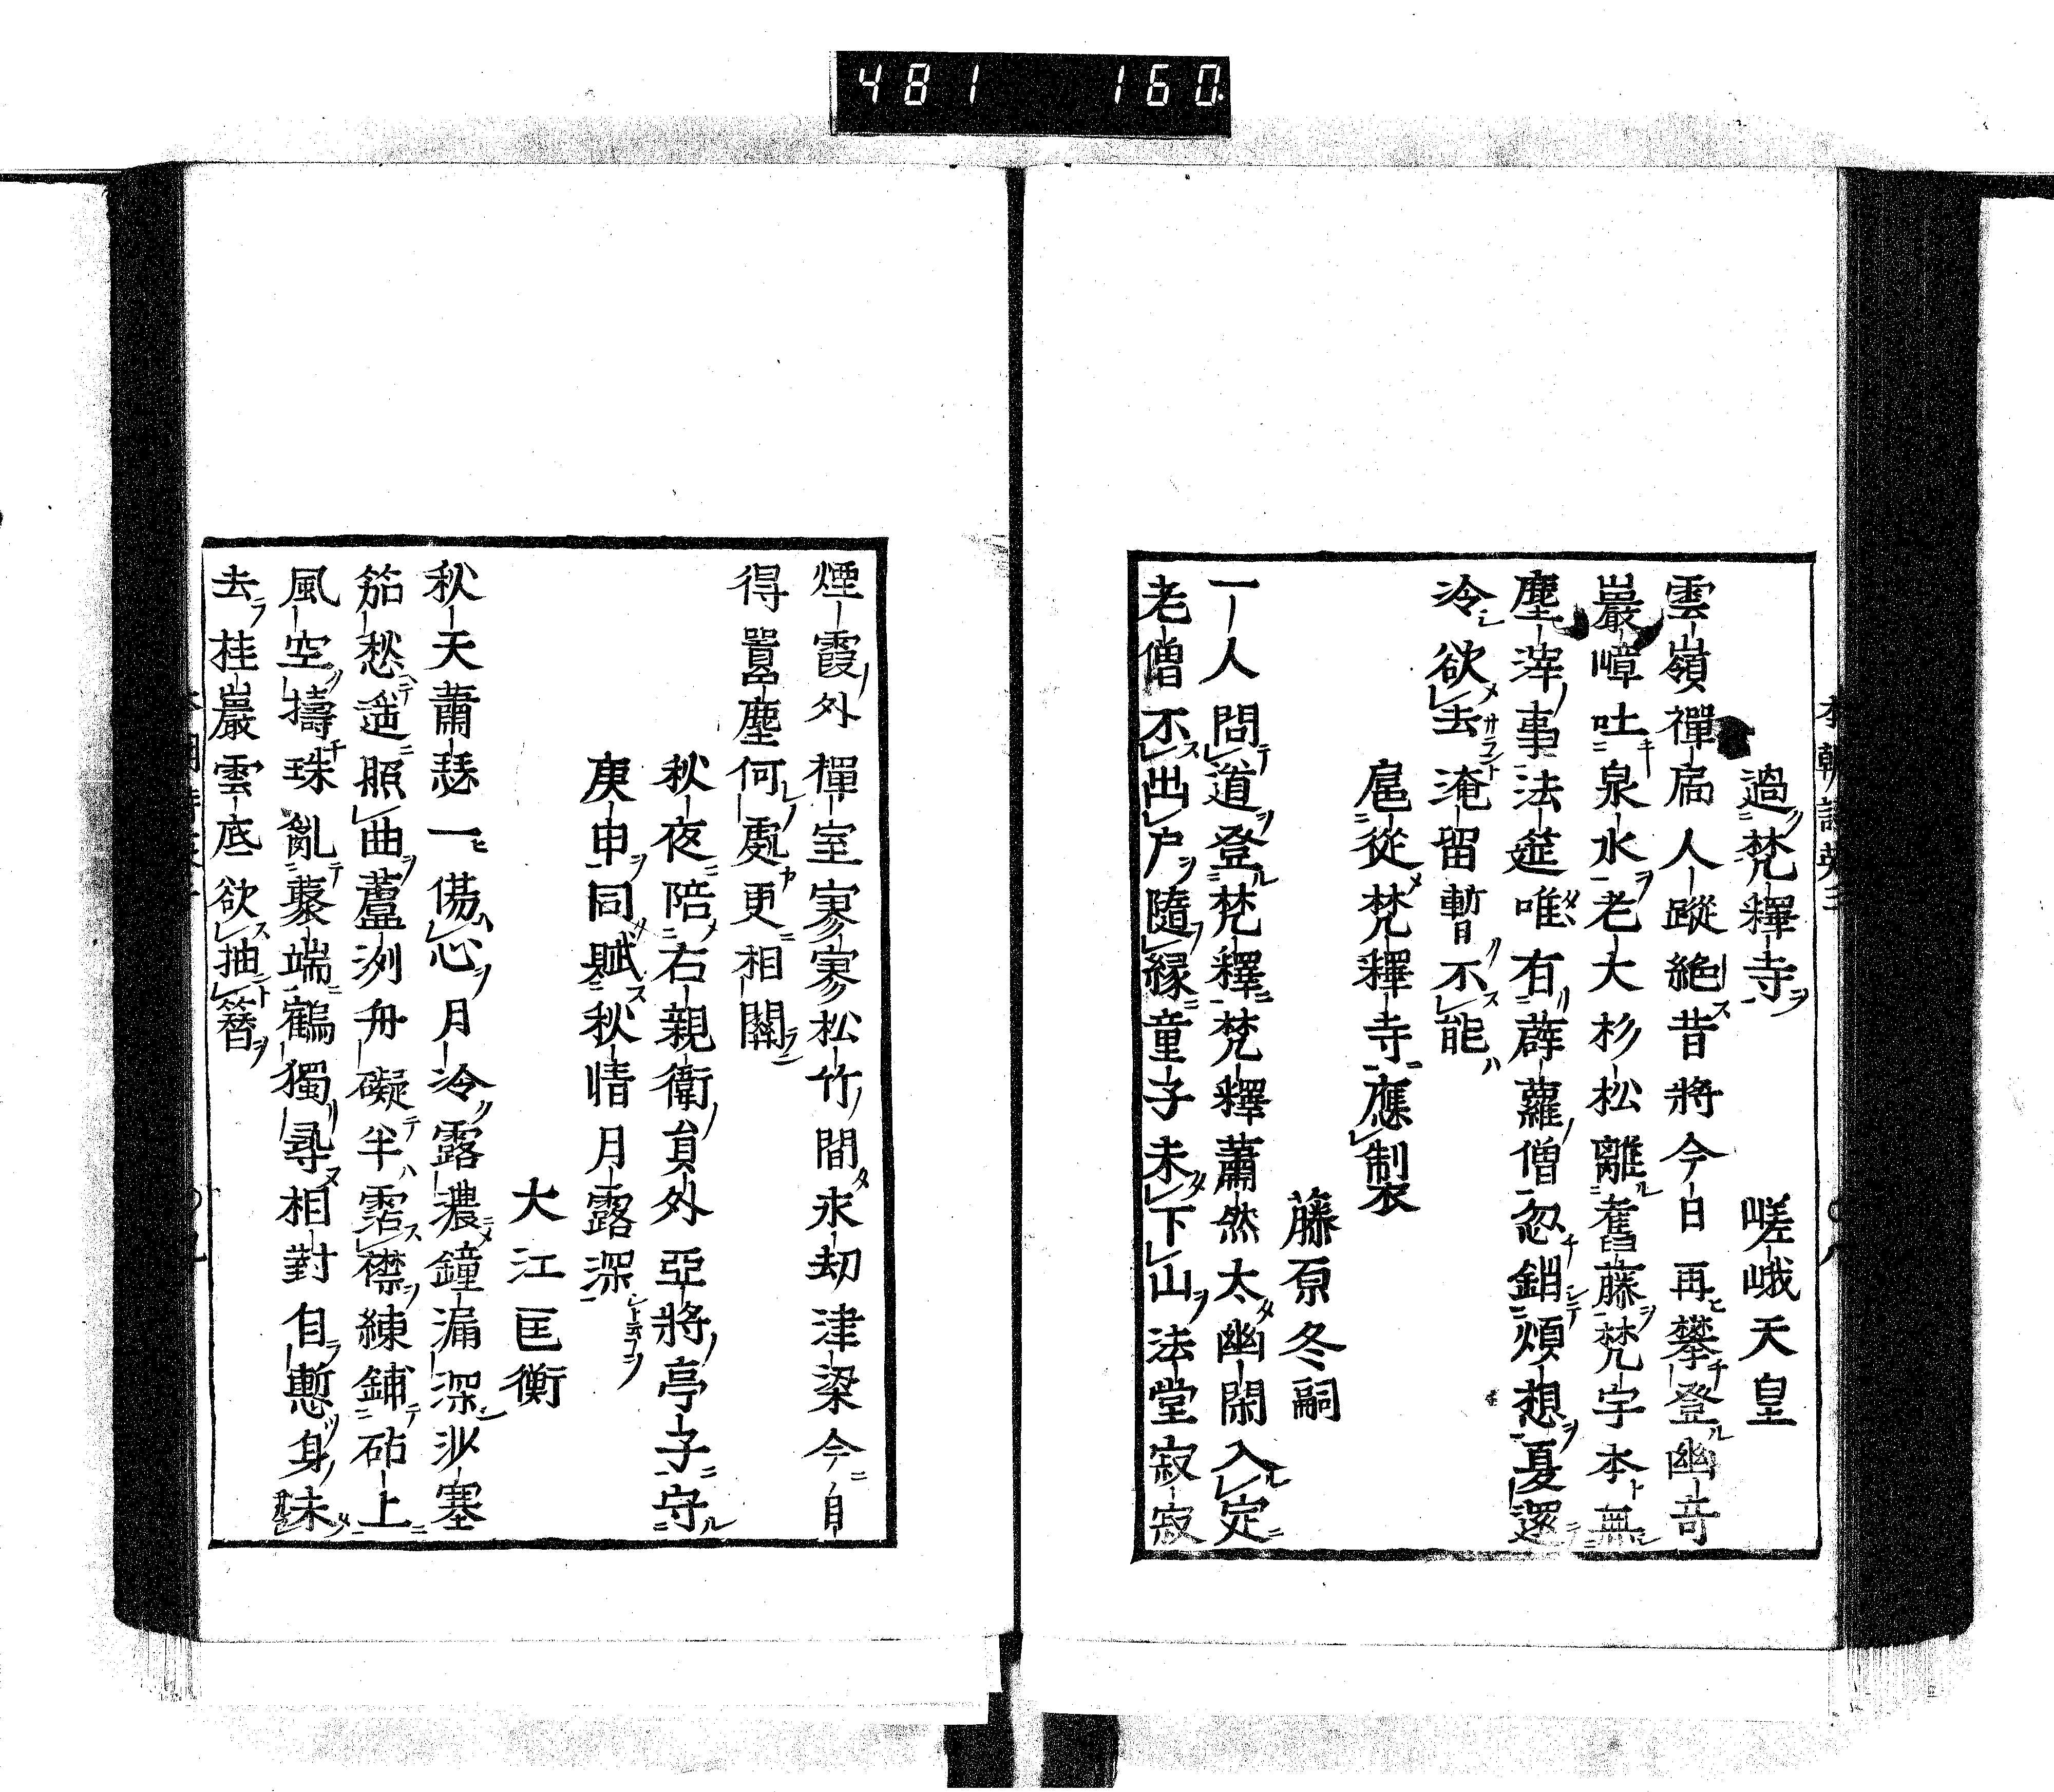 481 160
過梵釋寺
嵯峨天皇
雲嶺禪扃人蹤絶昔將今日再攀登幽奇
巖嶂吐泉水老大杉松離舊藤梵宇本無
塵滓事法筵唯有薜蘿僧忽銷煩想夏還
冷欲去淹留暫不能
扈從梵釋寺應製
藤原冬嗣
一人問道登梵釋梵釋蕭然太幽閑入定
老僧不出戸隨緣童子未下山法堂寂寂
煙霞外禪室寥寥松竹間永劫津梁今自
得囂塵何處更相關
秋夜陪右親衛員外亞將亭子守
庚申同賦秋情月露深
大江匡衡
秋天蕭瑟一傷心月冷露濃鐘漏深沙塞
笳愁遥照曲蘆洲舟礙半霑襟練鋪砧上
風空擣珠亂藂端鶴獨尋相對自慙身未
去桂巖雲底欲抽簪